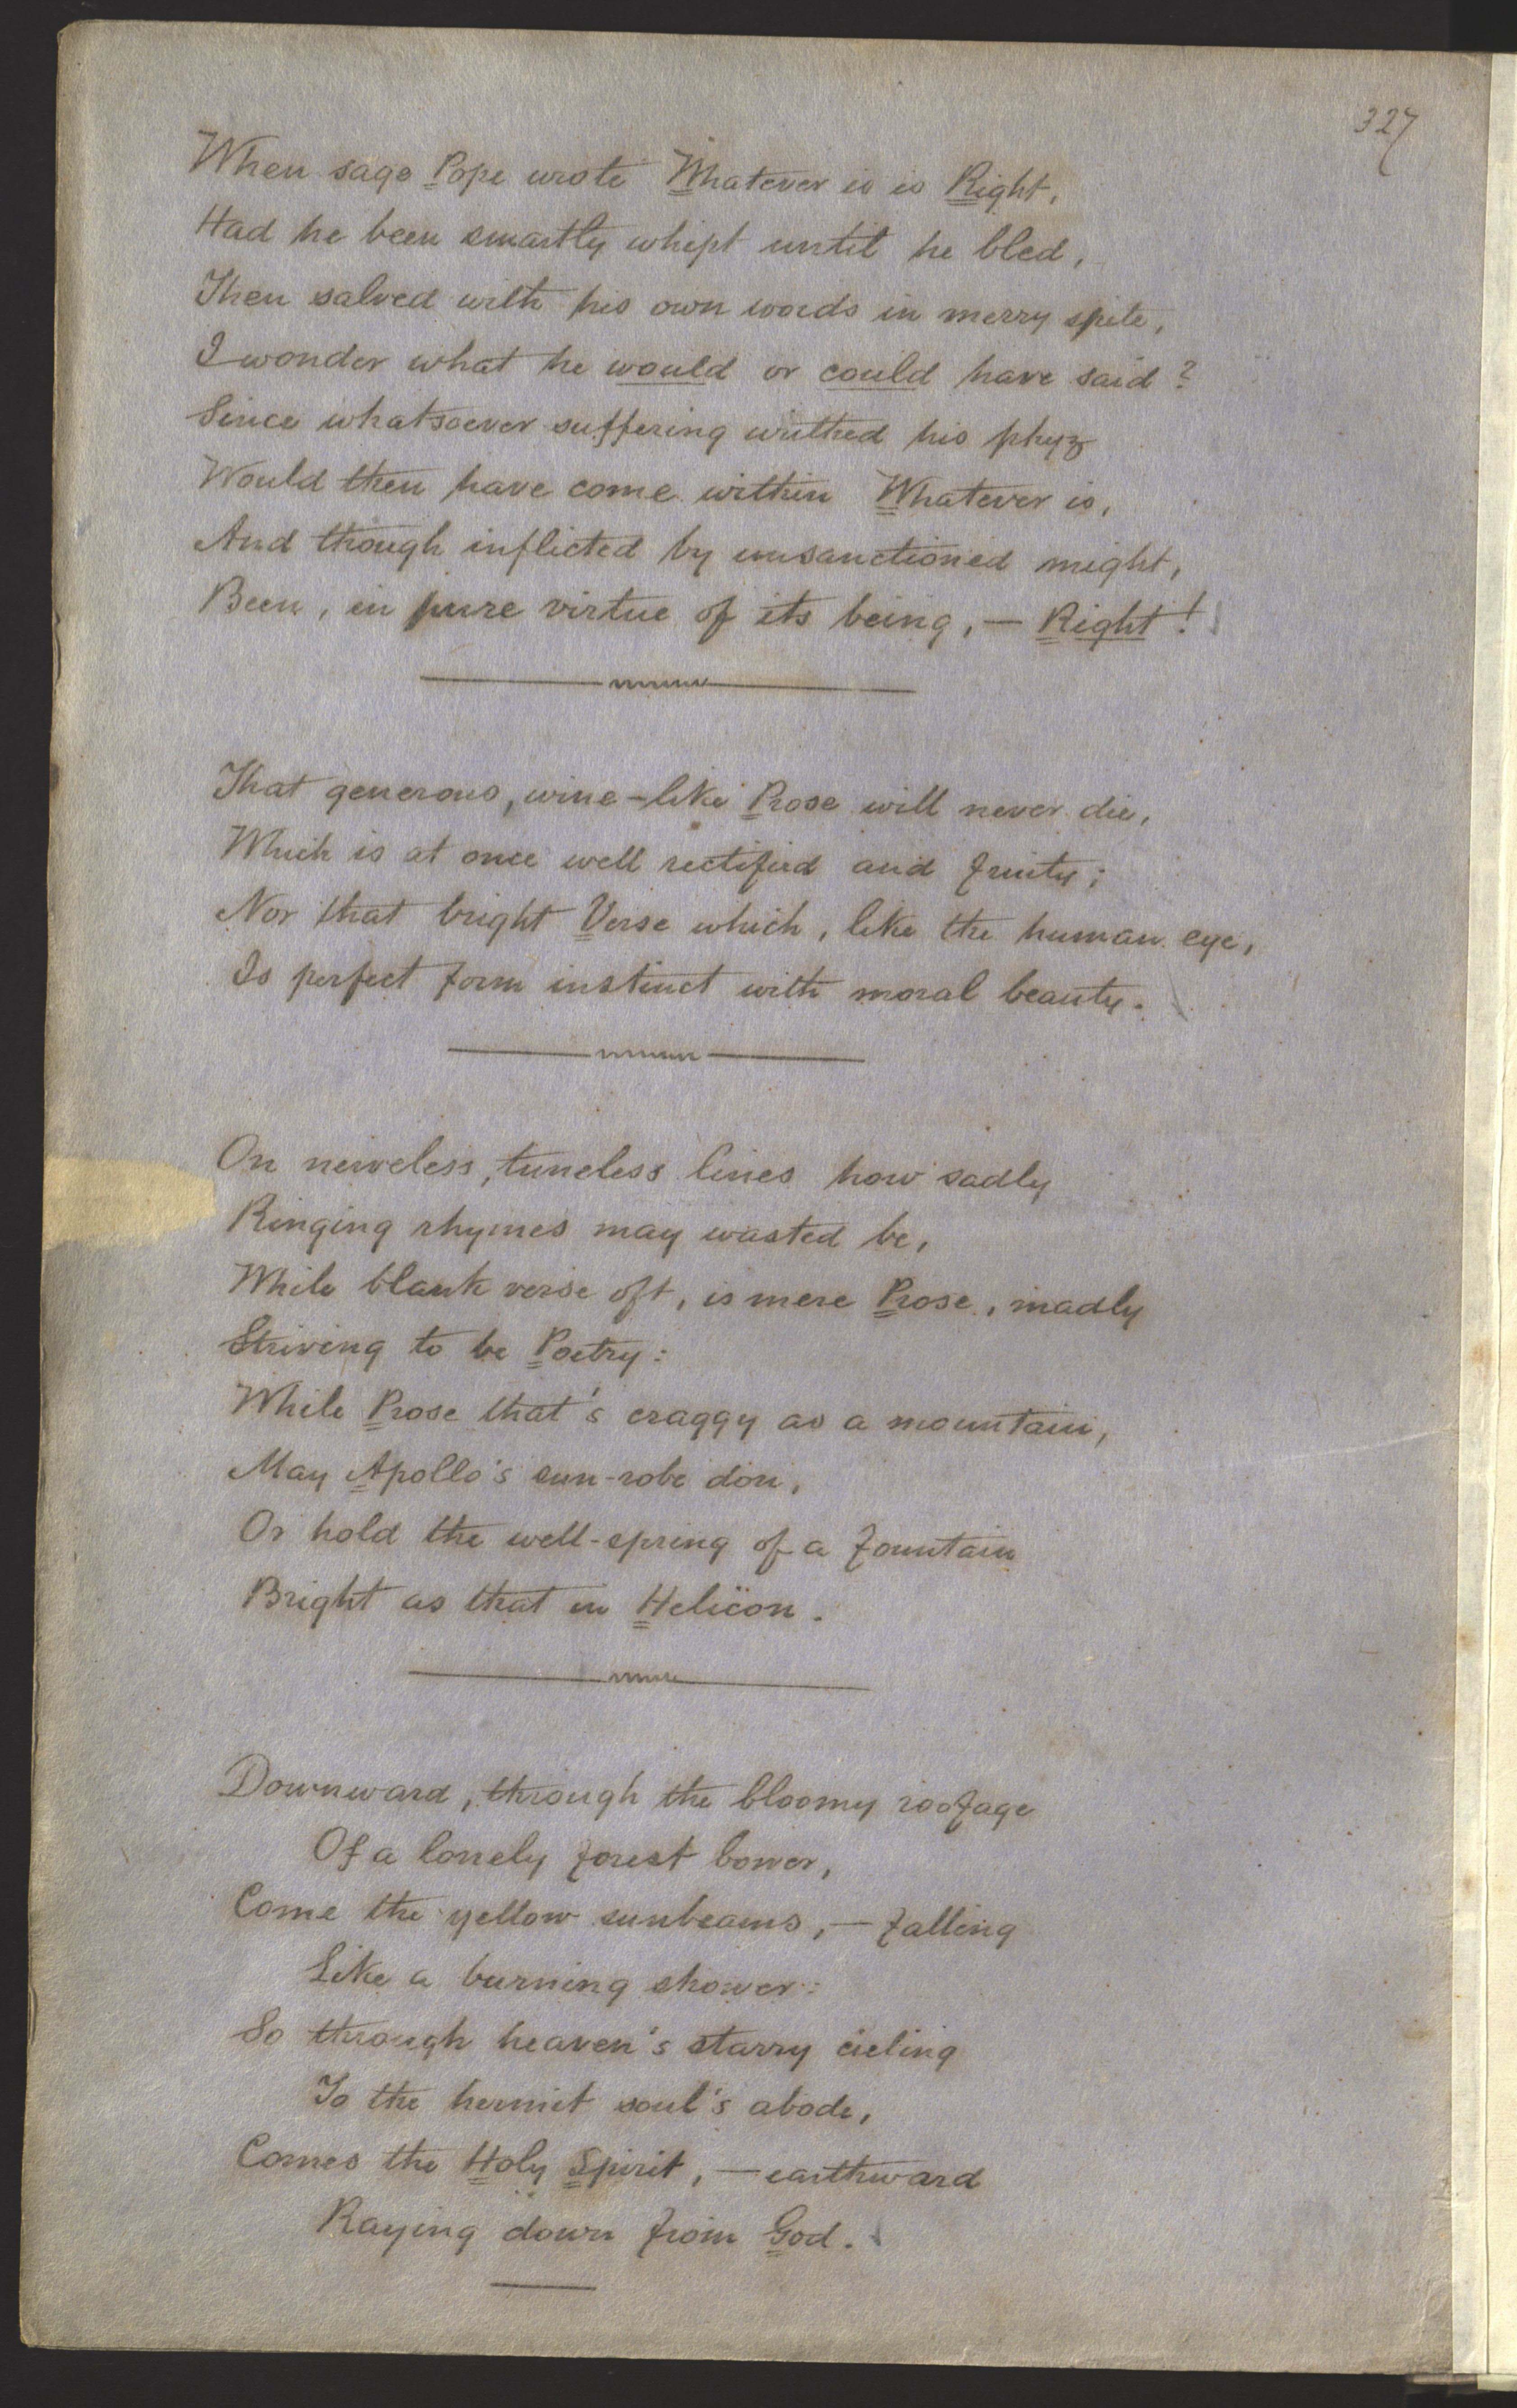 327
When sage Pope wrote Whatever is is Right,
Had he been smartly whipt until he bled,
Then salved with his own words in merry spite,
I wonder what he would or could have said?
Since whatsoever suffering writhed his phyz
Would then have come within Whatever is,
And though inflicted by unsanctioned might,
Been, in pure virtue of its being, — Right!
That generous, wine-like Prose will never die,
Which is at once well rectified and fruity;
Nor that bright Verse which, like the human eye,
Is perfect form instinct with moral beauty.
On nerveless, tuneless lines how sadly
Ringing rhymes may wasted be,
While blank verse oft, is mere Prose, madly
Striving to be Poetry:
While Prose that's craggy as a mountain,
May Apollo's sun-robe don,
Or hold the well-spring of a fountain
Bright as that in Helicon.
Downward, through the bloomy roofage
Of a lonely forest bower,
Come the yellow sunbeams, — falling
Like a burning shower:
So through heaven's starry cieling
To the hermit soul's abode,
Comes the Holy Spirit, — earthward
Raying down from God.